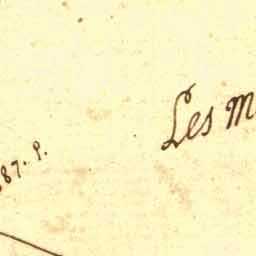 Les m
87. P.